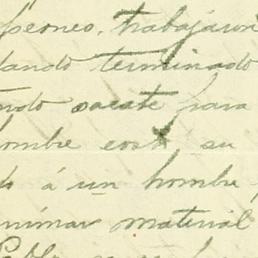 peones, trabajaron
tando terminado
ndo zacate para
ombre con su
do á un hombre
animar material